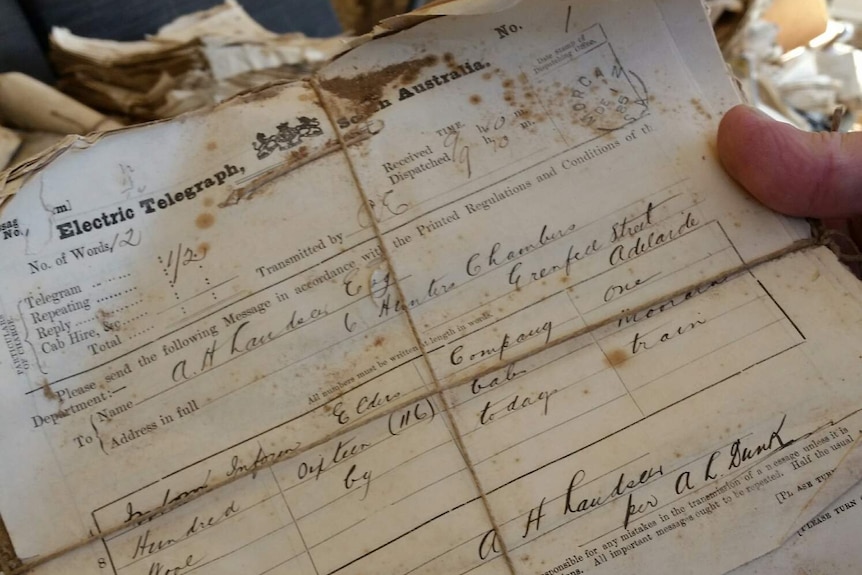 No. 1
Electric Telegraph, South Australia.
Date Stamp of
Dispatching Office.
No. of Words 12
TIME.
Received 9 h.
Dispatched 9 h.
Transmitted by
Telegram 1/2
Repeating
Reply
Cab Hire, &c
Total
PARTICULARS
OF CHARGE
Please send the following Message in accordance with the Printed Regulations and Conditions of th
Department:—
To Name A. H Landseer Esq
Address in full 6 Hunters Chambers
Grenfell Street
Adelaide
All numbers must be written at length in words.
Inform Inform Elders Company one
Hundred Sixteen (116) bales
by today train
8
A H Landseer
per A L. Dunk
responsible for any mistakes in the transmission of a message unless it is
All important messages ought to be repeated. Half the usual
[PLEASE TURN
[PLEASE TURN